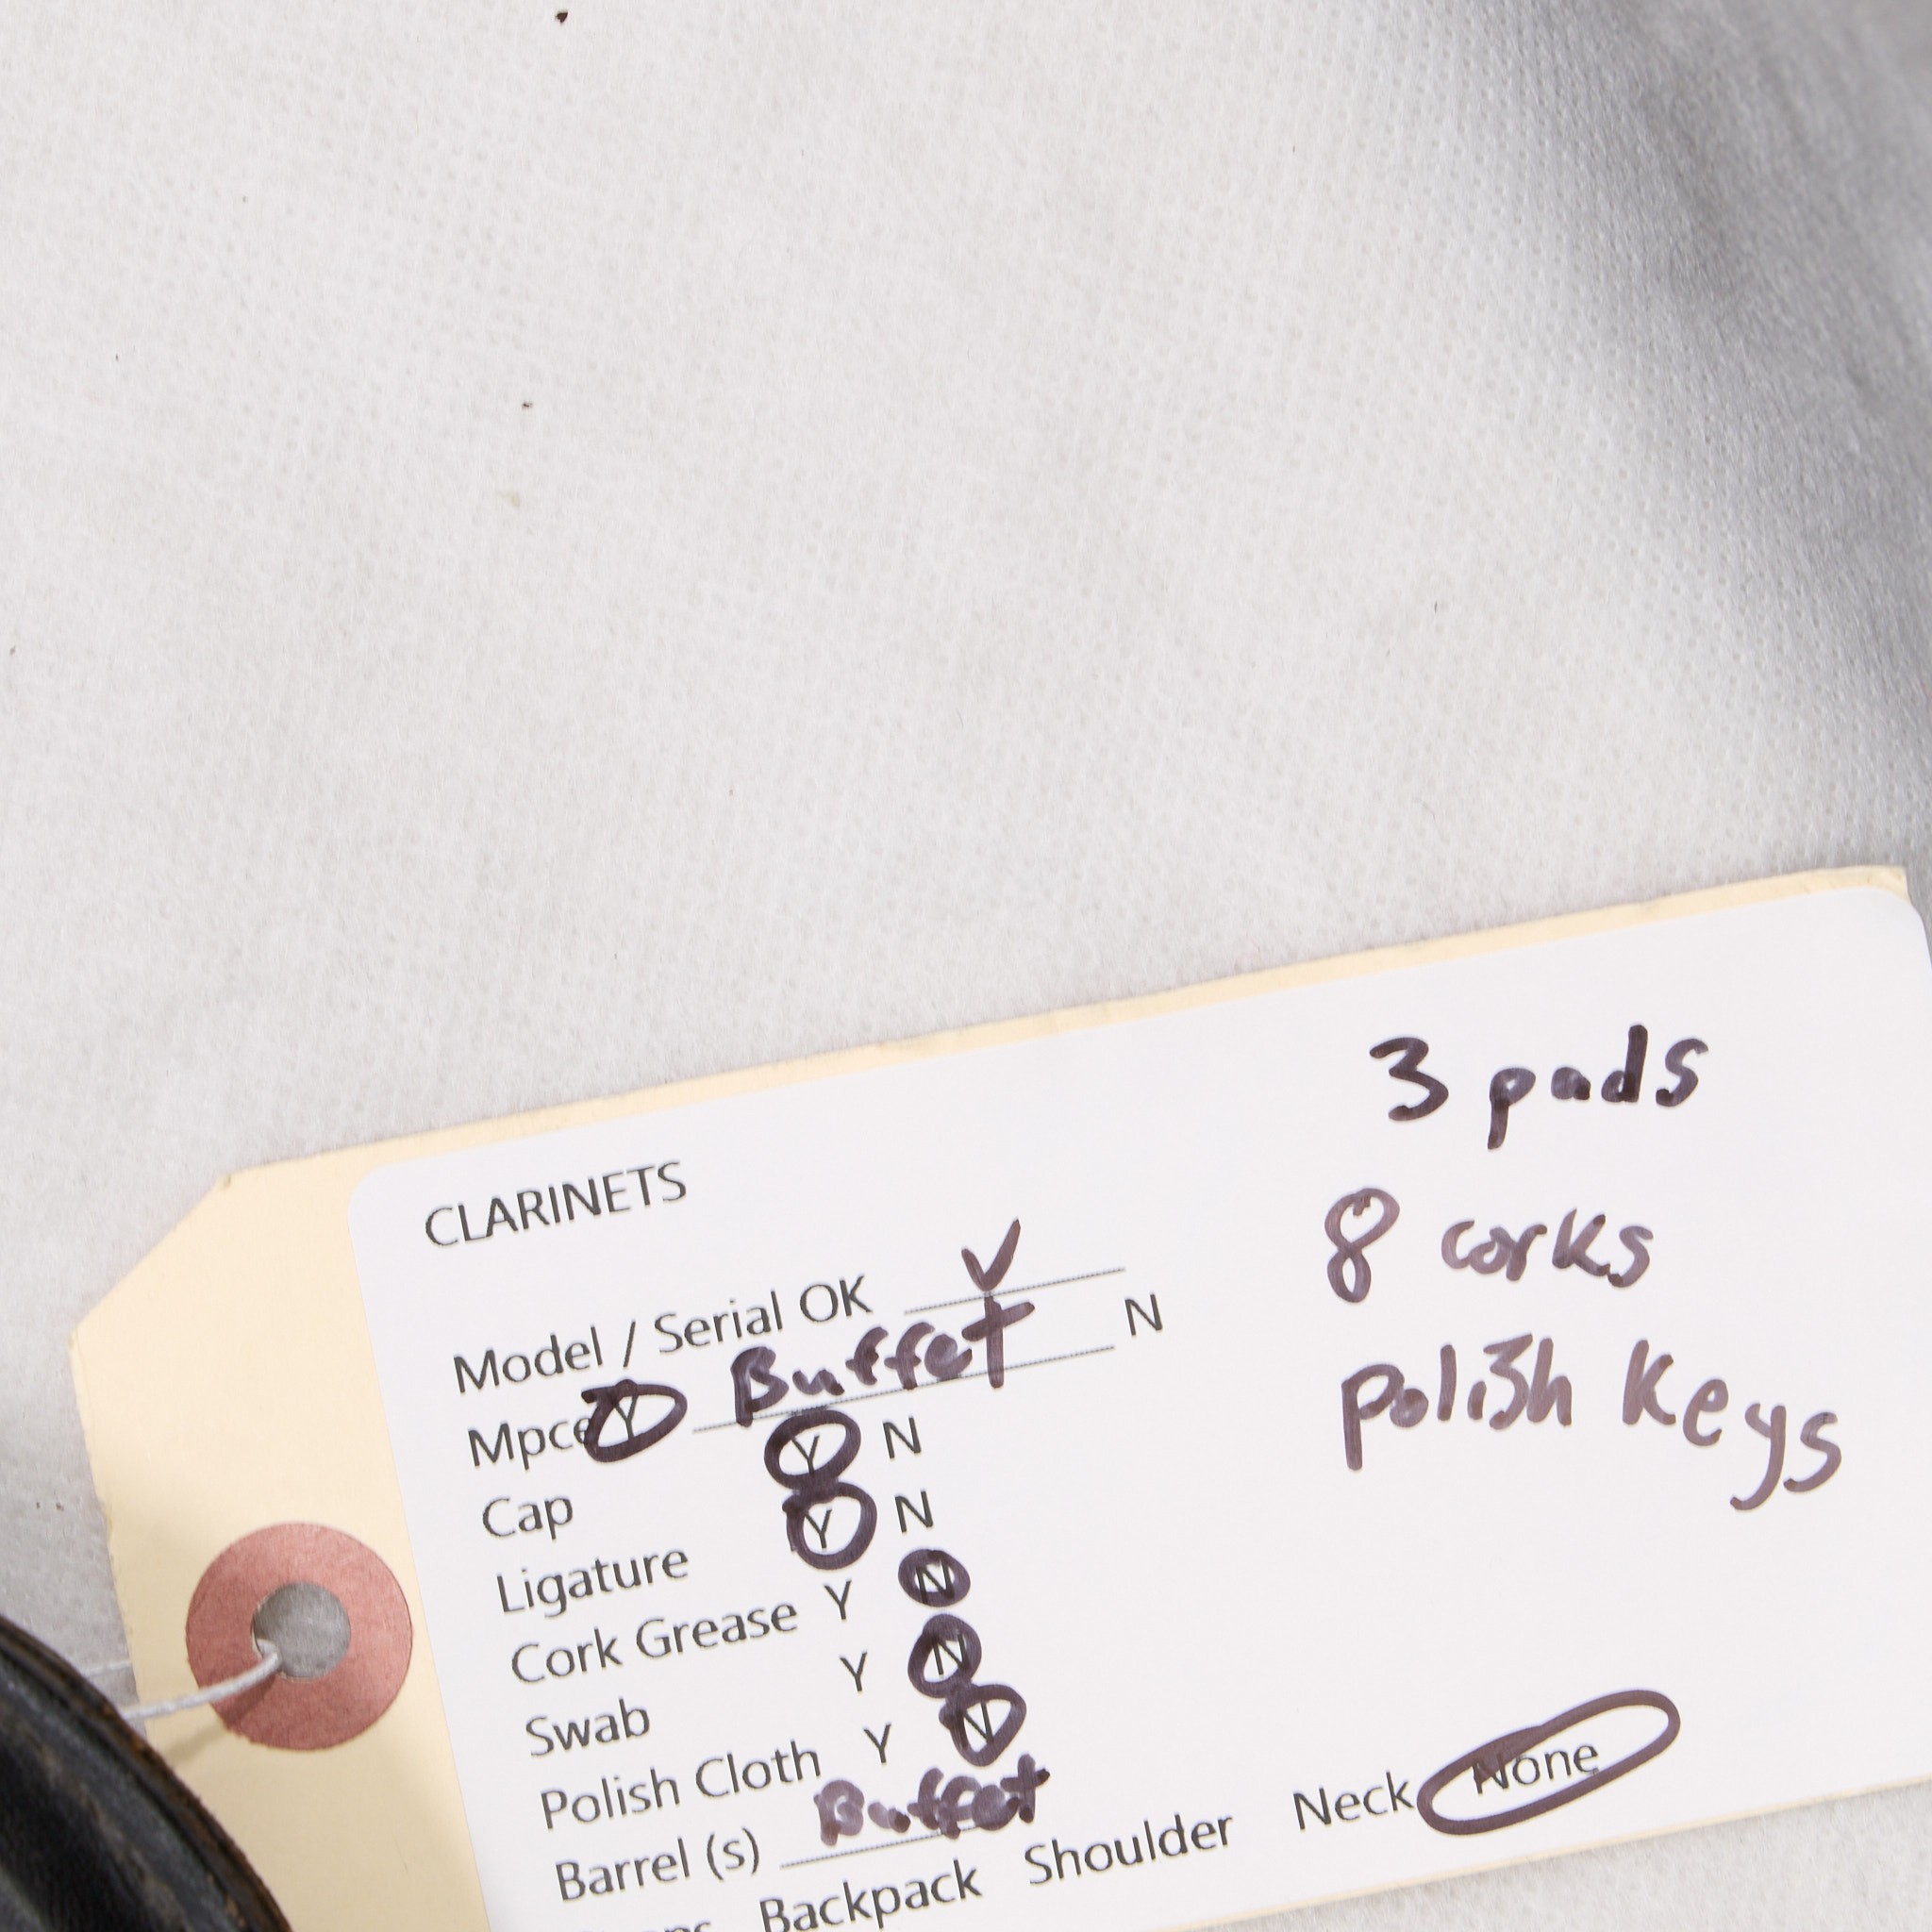 CLARINETS
Model / Serial OK ✓
Mpce Y Buffet N
Cap Y N
Ligature Y N
Cork Grease Y N
Swab Y N
Polish Cloth Y N
Barrel (s) Buffet
Backpack Shoulder Neck None
3 pads
8 corks
polish keys